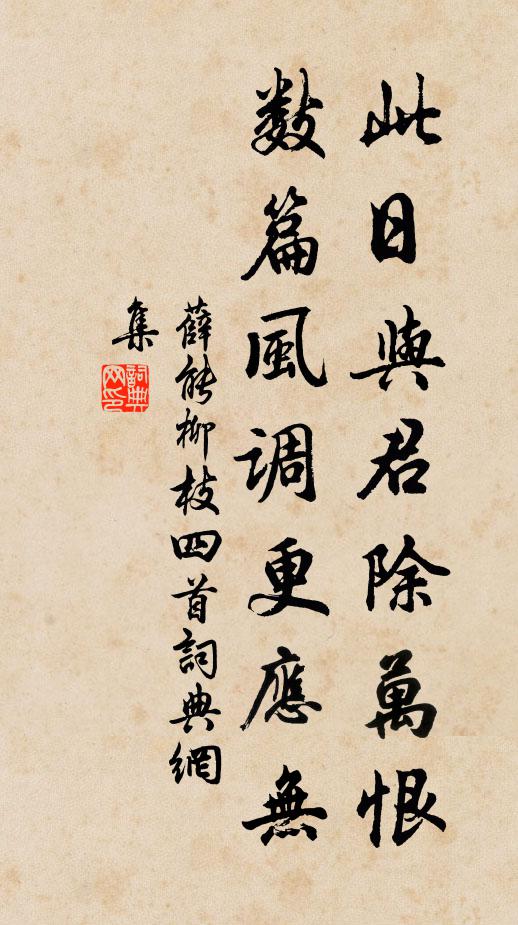 此日與君除萬恨
數篇風調更應無
薛能柳枝四首詞典網
集
詞典
网印